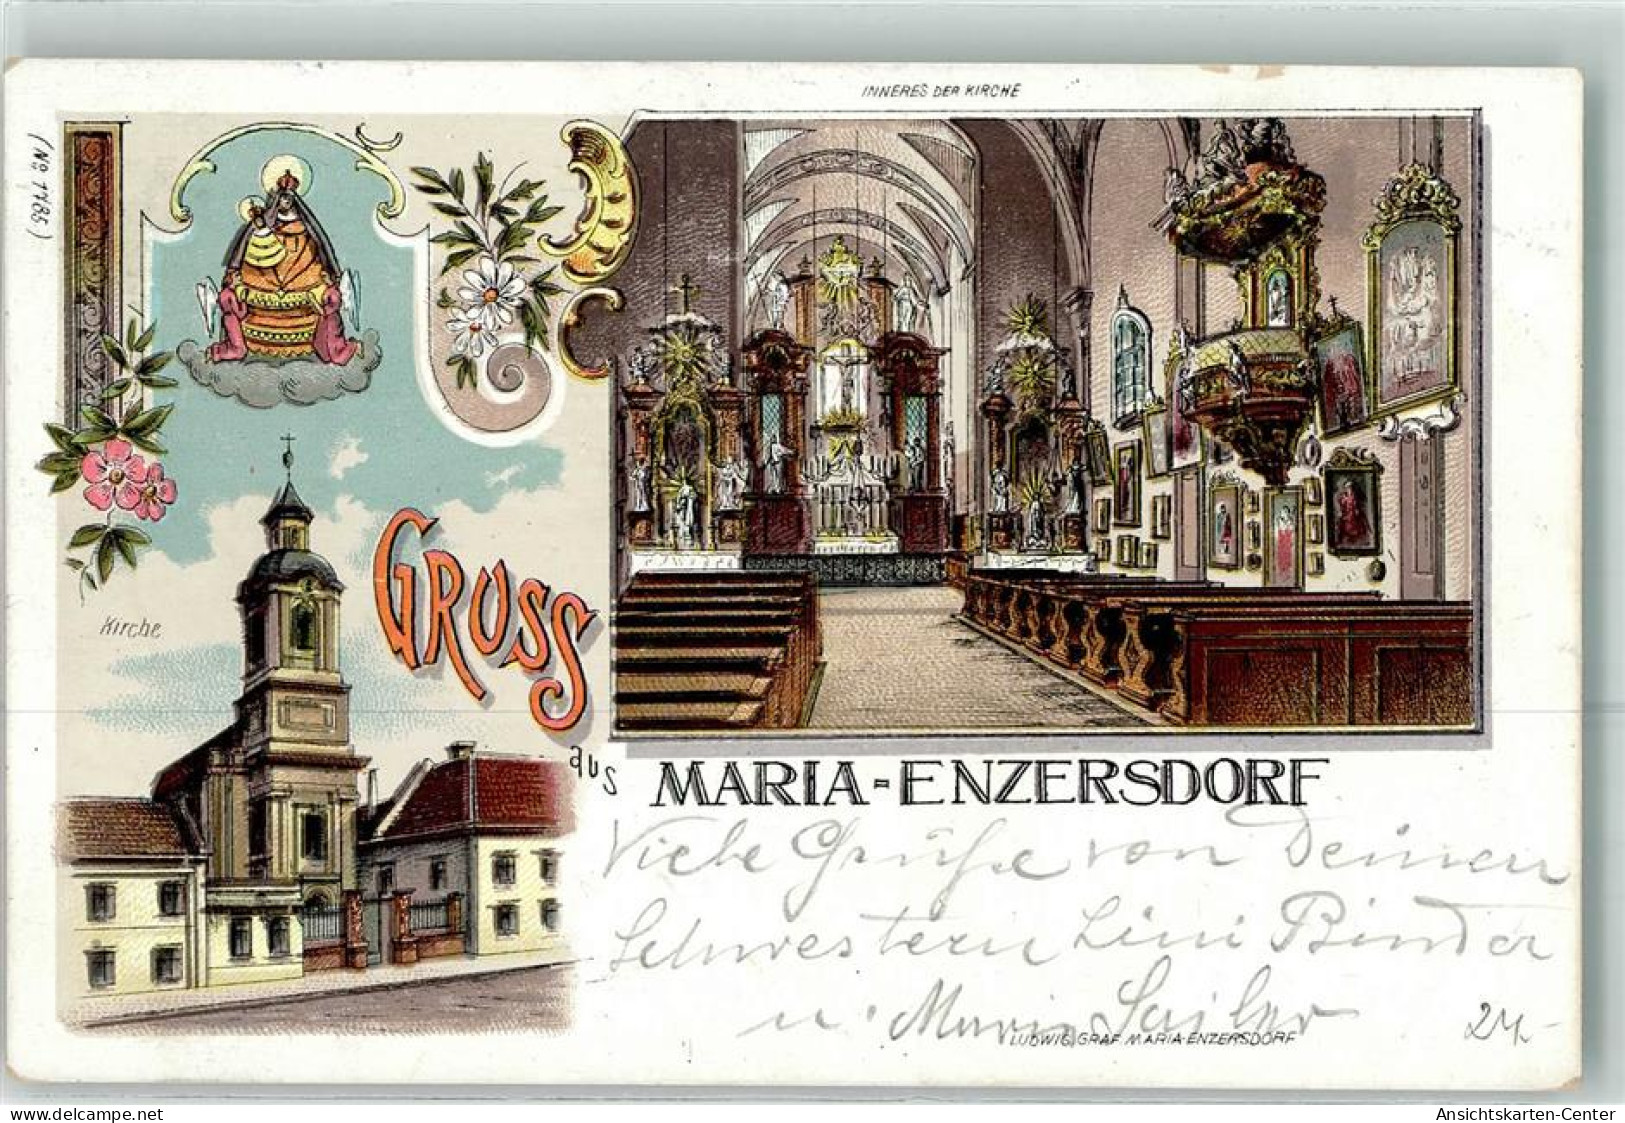 INNERES DER KIRCHE
(No. 1785)
Kirche
GRUSS
aus
MARIA-ENZERSDORF
Viele Grüße von Deinen
Schwestern Lini Binder
u. Marie
LUDWIG GRAF MARIA-ENZERSDORF
24.-
delcampe.net
Ansichtskarten-Center